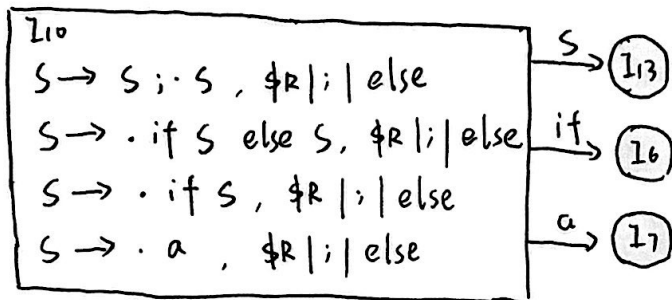 I10
S → S ; · S , $R | ; | else
S → · if S else S, $R | ; | else
S → · if S , $R | ; | else
S → · a , $R | ; | else
S
I13
if
I6
a
I7